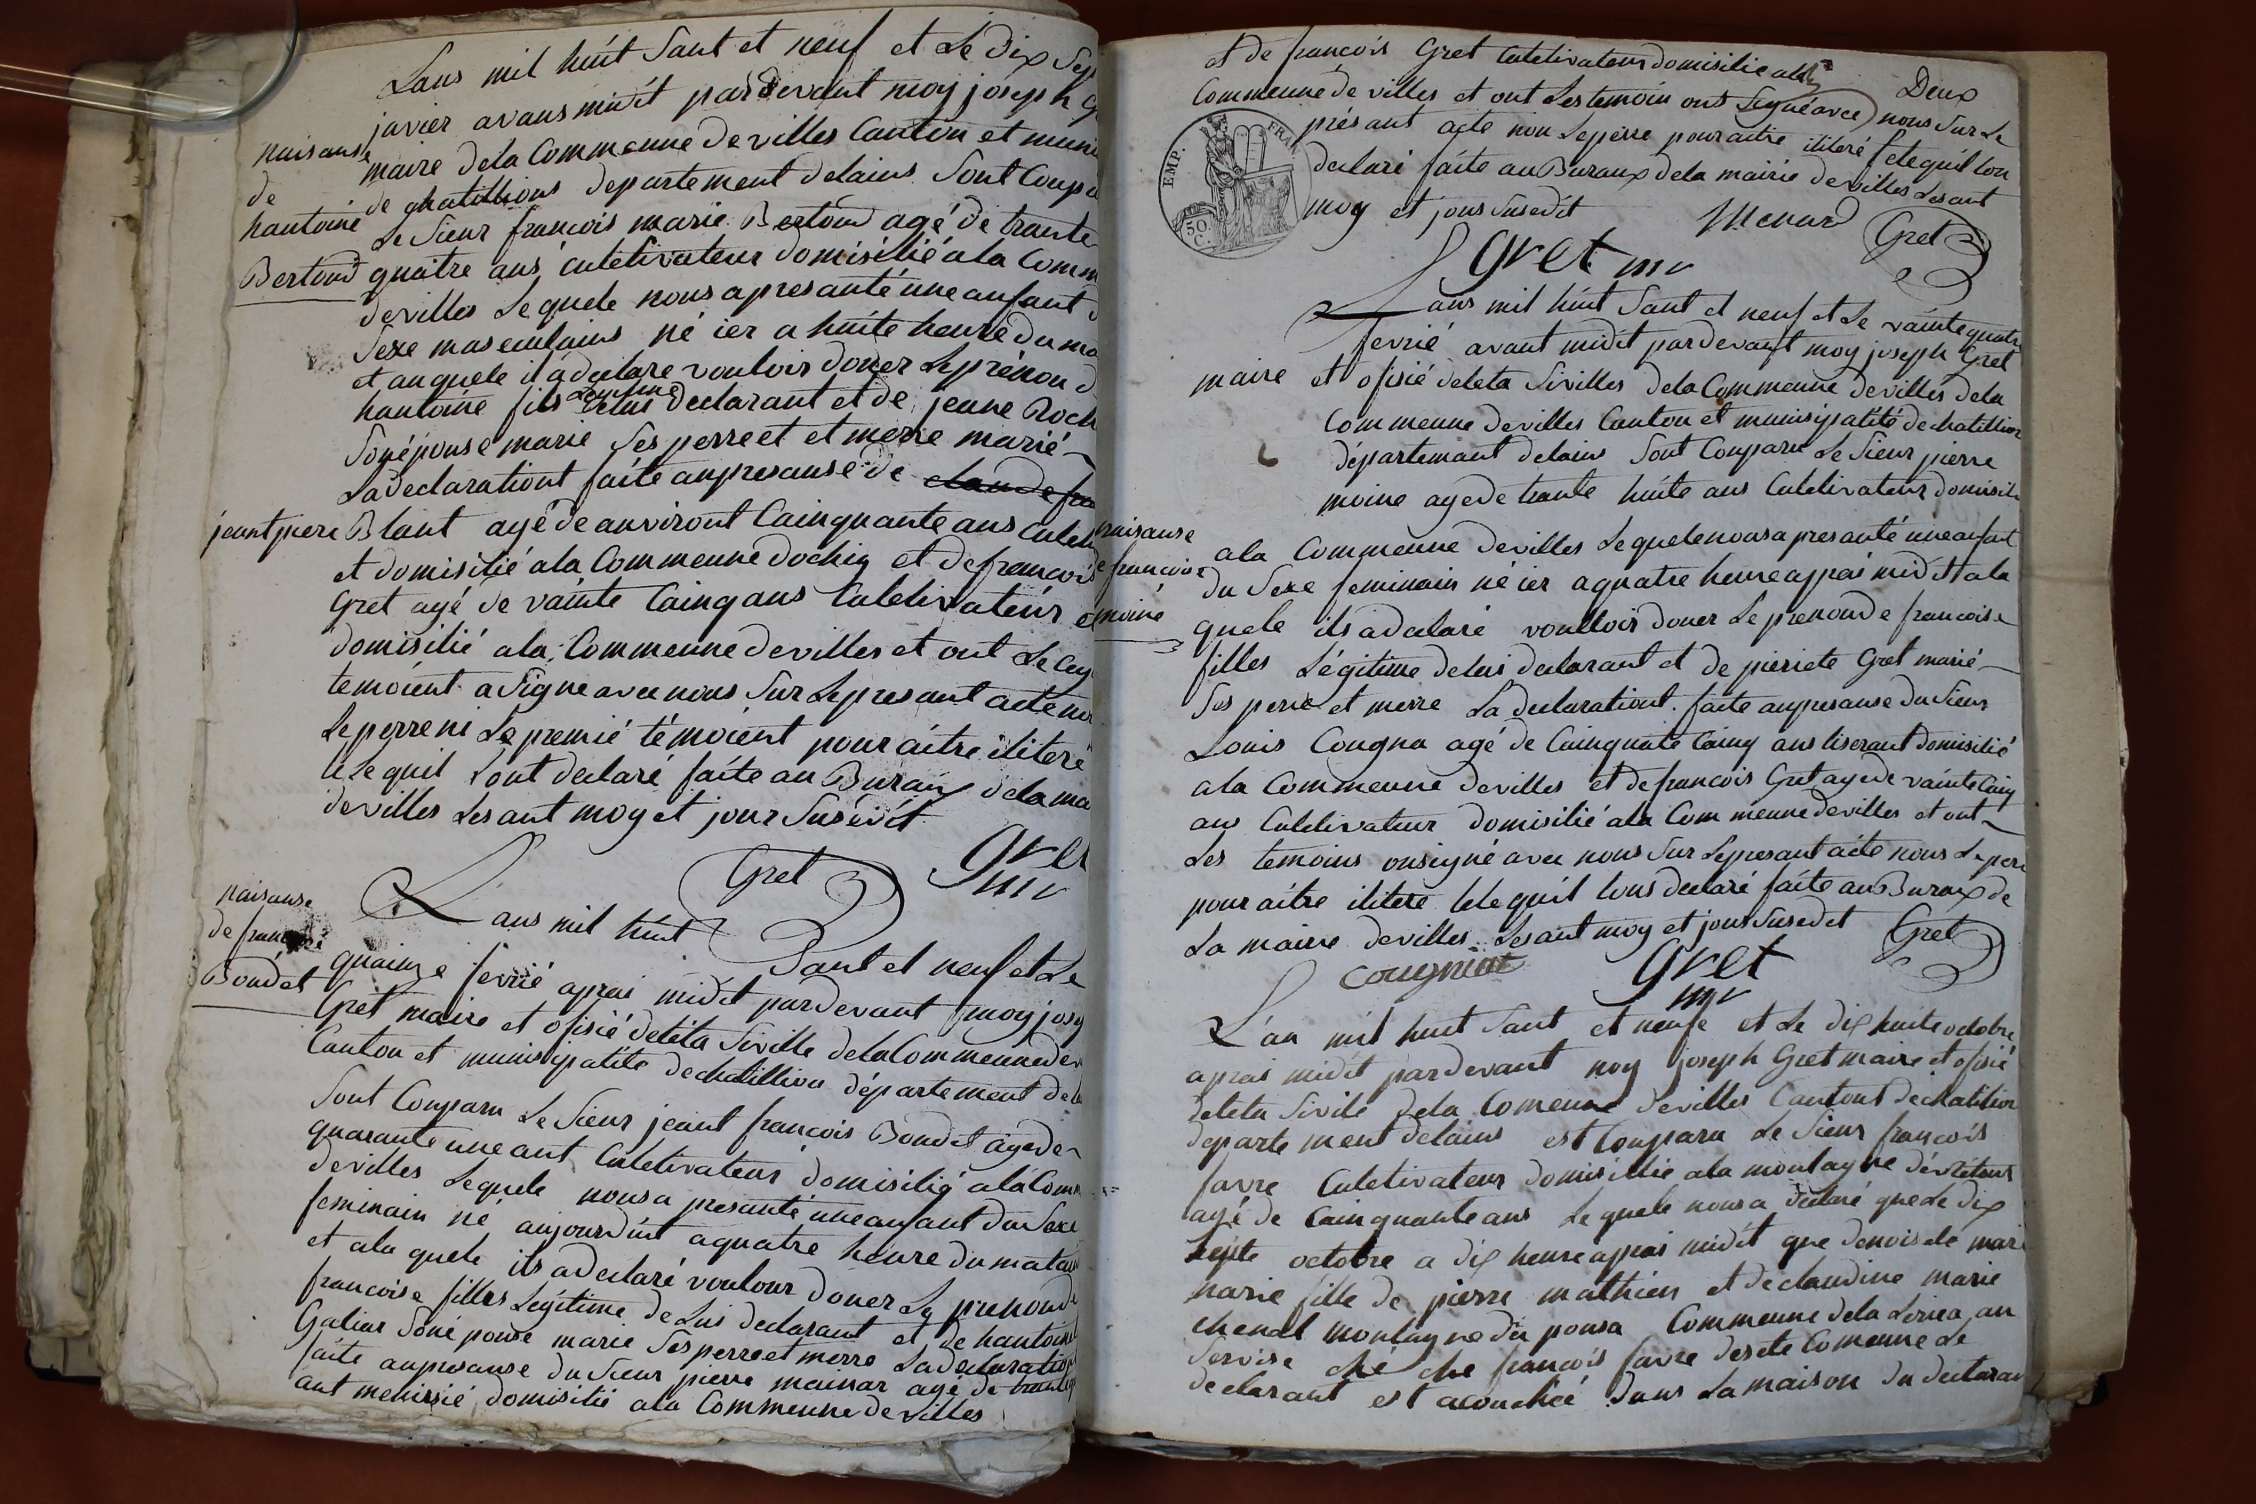 Lans mil huit Sant et neuf et Le dix Sep
javier avans midit pardevant moy joseph G
maire dela Commeune de villes Canton et muni
de chatillions departement delains Sont Coupa
Le Sieur francois marie Bertond agé de trante
quatre ans cultivateur domisilié ala Comm
devilles Le quele nous apresanté une anfant d
Sexe masculains né ier a huite heure du ma
et auquele il adeclare vouloir doner Leprénon d
hantoine fils Legitime delui declarant et de jeane Roch
Soné pouse marie Ses perre et et merre marié
La declarationt faite anpresanse de claude fra
jeant piere Blant agé de anviront Cainquante ans Culeti
et domisilié ala Commeune dochiy et defrancois
Gret agé de vainte Cainq ans Culetivateur
domisilié ala Commeune devilles et ont Le
temoient a Signe avec nous Sur Lepresant acte
Leperre ni Le premié témoient pour aitre ilitere
cele quil Lont declaré faite au Buraux dela ma
devilles Lesant moy et jour Susédit
Gret
Gret
mr
naisanse
de
hantoine
Bertond
naisanse
de francoise
Boudet
Lans mil huit Sant et neuf et Le
quainze fevrié aprai midit pardevant moy jos
Gret maire et ofisié deleta Siville dela Commeune de
Canton et munisipatite dechatillion département de
Sont Conparu Le Sieur jeant francois Boudet agede
quarante une ant Culetivateur domisilié ala Com
devilles Lequele nousa presanté une anfant du Sexe
feminain né aujourduit a quatre heure du matain
et ala quele ils adeclaré vouloir doner Le prenon de
francoise filles Légitime de Lui declarant et de hantoine
Galias Soné pouse marie Ses perre et merre La declaration
faite anpresanse du Sieur pierre mainar agé de trante
ant menisié domisilié ala Commeune devilles
Deux
et de francois Gret Culetivateur domisilié ala
Commeune de villes et ont Les temoin ont Signé avec nous Sur Le
présant acte non Leperre pour aitre ilitere cele quil Lon
declaré faite au Buraux dela mairie devilles Lesant
moy et jour Susedit
EMP. FRAN.
50. C.
Menard
Gret
Gret mr
Lans mil huit Sant et neuf et Le vainte quatre
fevrié avant midit pardevant moy joseph Gret
maire et ofisié deleta Sivilles dela Commeune devilles dela
Commeune devilles Canton et munisipatité dechatillion
départemant delains Sont Conparu Le Sieur pierre
moine agede trante huite ans Culetivateur domisil
naisanse
de francoise
moine
ala Commeune devilles Lequele nousa presanté une anfant
du Sexe feminain né ier a quatre heure apprai midit ala
quele ils adeclaré voulloir doner Le prenon de francoise
filles Légitime delui declarant et de pierrete Gret marié
Ses perre et merre La declarationt faite anpresanse du Sieur
Louis Cougna agé de Cainquate Cainq ans tiserant domisilié
ala Commeune devilles et de francois Gret agede vainte Cainq
ans Culetivateur domisilié ala Commeune devilles et ont
Les temoins onsigné avec nous Sur Lepresant acte nons Leper
pour aitre ilitere cele quil Lons declaré faite au Buraux de
La mairie devilles Lesant moy et jour Susedet
Gret
cougniat
Gret
mr
L'an mil huit Sant et neufe et Le dix huite octobre
aprai midit pardevant moy joseph Gret maire et ofisié
deleta Sivile dela Comeune devilles Cantont dechatilion
departement delains est Conparu Le Sieur francois
favre Culetivateur domisillié ala montagne
agé de Cainquante ans Lequele nousa déclaré que Le dix
Septe octobre a dix heure apprai midit que demoisele mari
marie fille de pierre mathieu et de claudine marie
chenel montagne du ponsa Commeune dela Lerica an
Servise ché che francois favre desete Comeune Le
declarant est acouchée Dans La maison du declaran